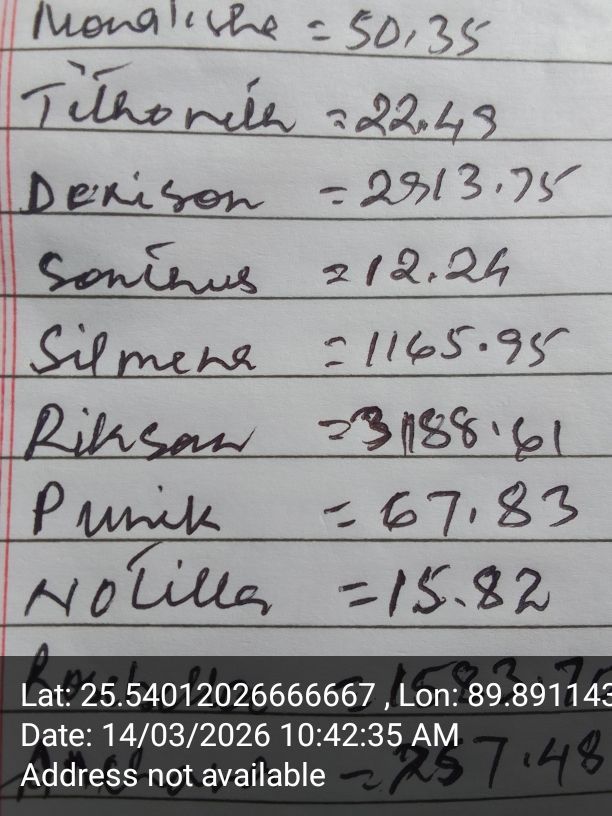 Monalisha = 50.35
Tilhorith = 22.49
Denison = 2913.75
Sontinus = 12.24
Silmena = 1165.95
Riksan = 3188.61
Punik = 67.83
Notilla = 15.82
= 1583.70
Lat: 25.54012026666667 , Lon: 89.891143
Date: 14/03/2026 10:42:35 AM
Address not available
= 257.48